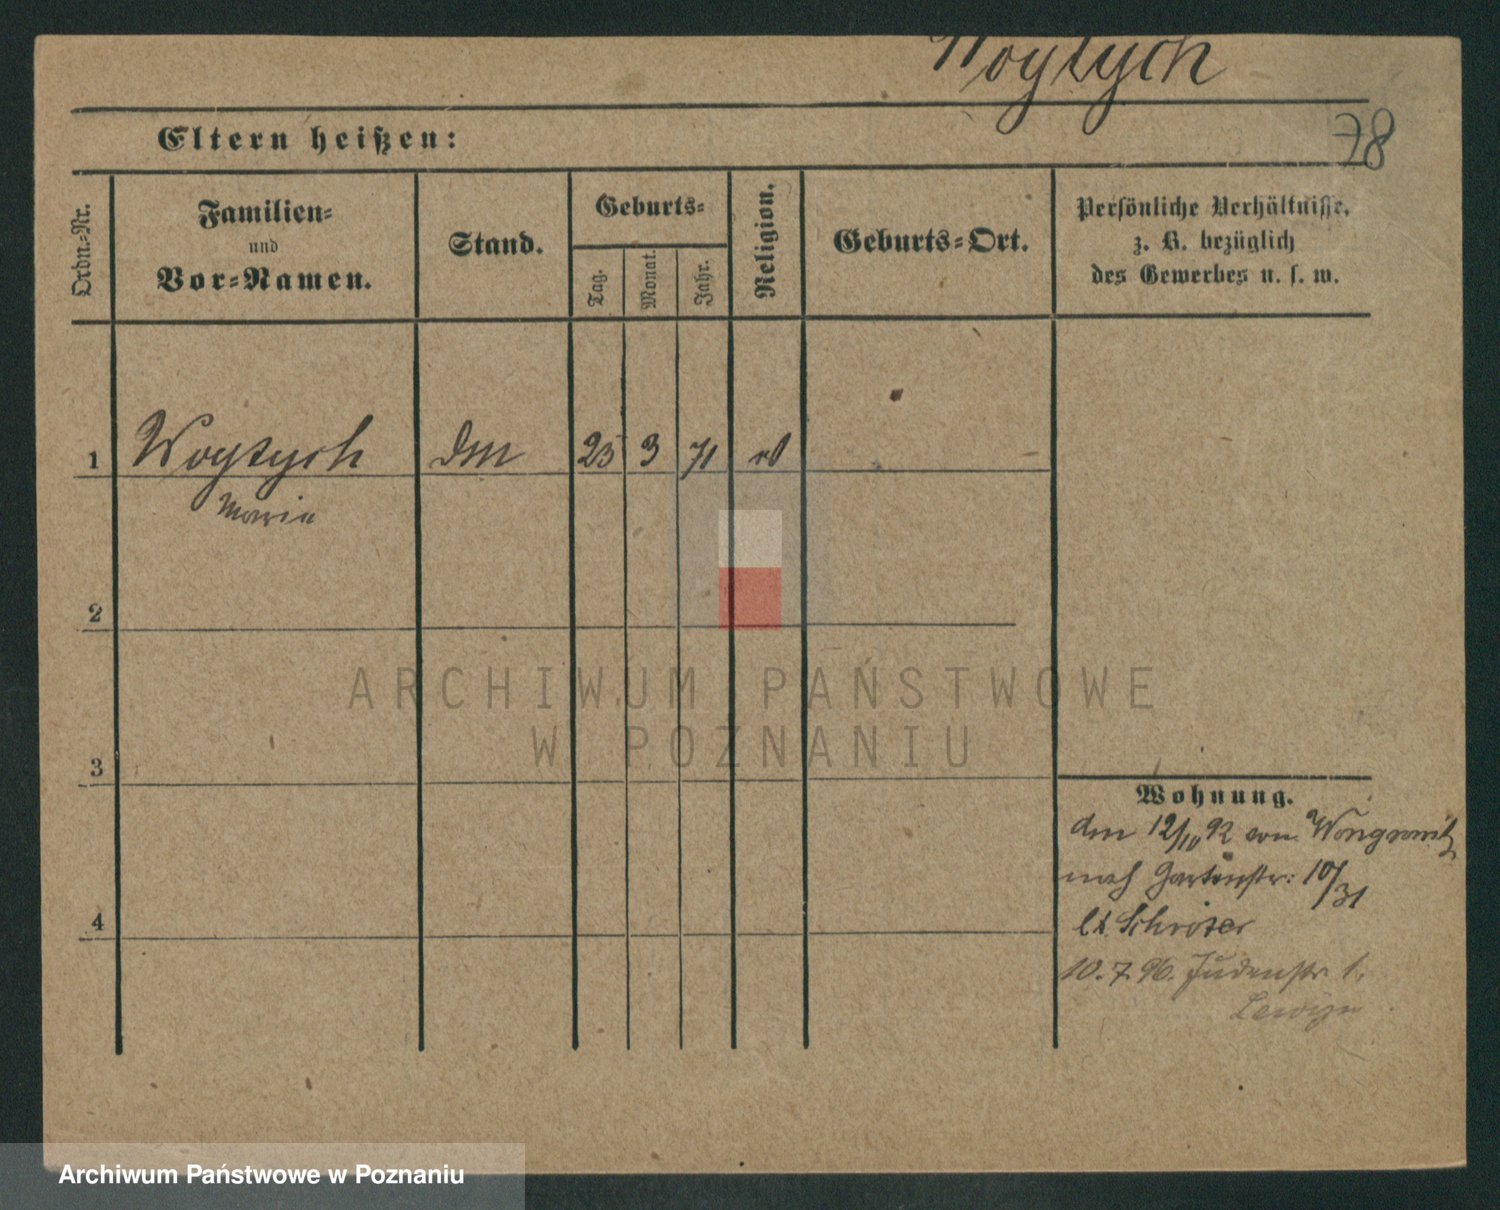 Woytych
78
Eltern heißen:
Ordn.-Nr.
Familien-
und
Vor-Namen.
Stand.
Geburts-
Tag.
Monat.
Jahr.
Religion.
Geburts-Ort.
Persönliche Verhältnisse,
z. B. bezüglich
des Gewerbes u. s. w.
1 Woytych 25 3 71
Maria
2
3
4
Wohnung.
den 12/10 92 von Wongrowitz
nach Gartenstr: 10/31
Schröter
10.7.96. Judenstr 1.
ARCHIWUM PAŃSTWOWE
W POZNANIU
Archiwum Państwowe w Poznaniu